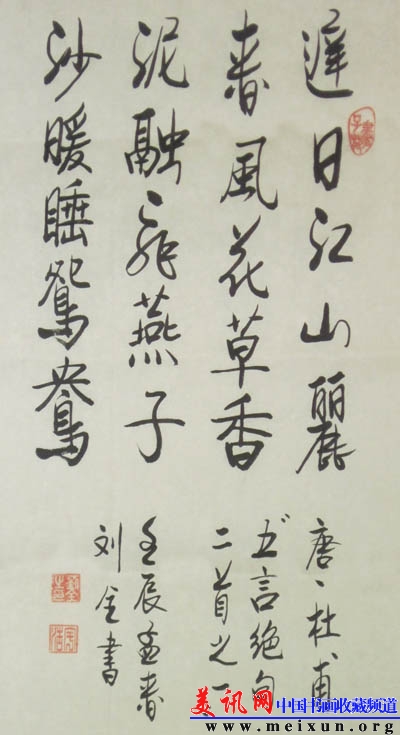 遲日江山麗
春風花草香
泥融飛燕子
沙暖睡鴛鴦
唐、杜甫
五言絕句
二首之一
壬辰孟春
刘金書
美讯网 中国书画收藏频道
www.meixun.org